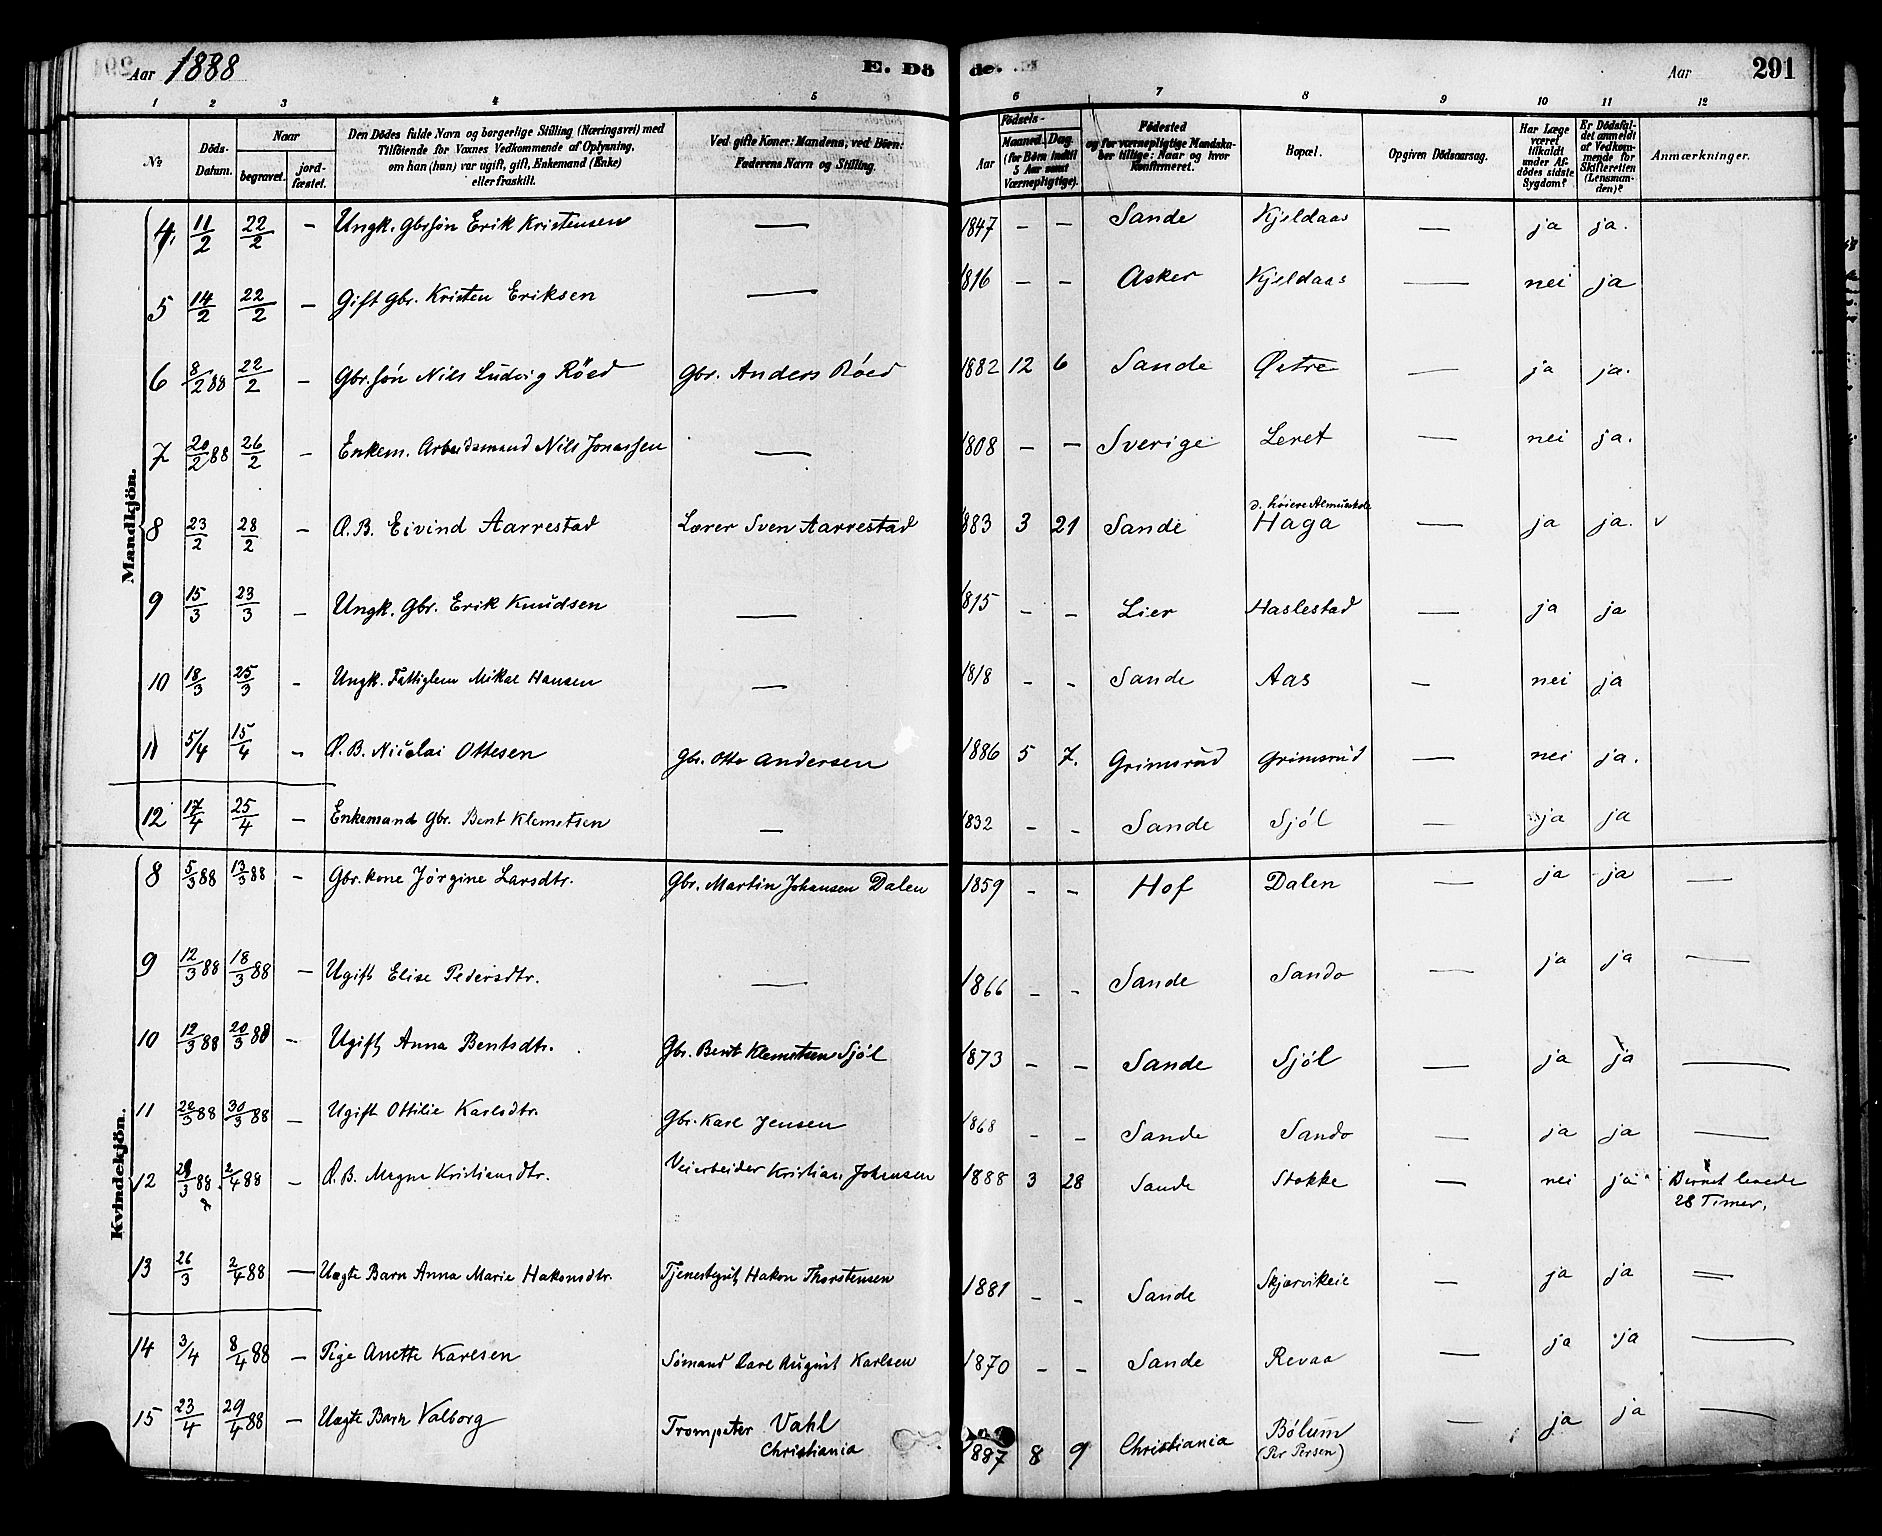 Aar 1888 E. Döde. Aar 291
1 2 3 4 5 6 7 8 9 10 11 12
No. Döds-Datum. Naar begravet. jord-fæstet. Den Dödes fulde Navn og borgerlige Stilling (Næringsvei) med Tilföiende for Voxnes Vedkommende af Oplysning, om han (hun) var ugift, gift, Enkemand (Enke) eller fraskilt. Ved gifte Koner: Mandens; ved Börn: Faderens Navn og Stilling. Födsels- Aar Maaned. Dag. (for Börn indtil 5 Aar samt Værnepligtige). Födested og for værnepligtige Mandskaber tillige: Naar og hvor Konfirmeret. Bopæl. Opgiven Dödsaarsag. Har Læge været tilkaldt under Afdödes sidste Sygdom? Er Dödsfaldet anmeldt af Vedkommende for Skifteretten (Lensmanden)? Anmærkninger.
Mandkjön.
4 11/2 22/2 — Ungk. Gbr.sön Erik Kristensen — 1847 — — Sande Kjeldaas — ja ja.
5 14/2 22/2 — Gift Gbr. Kristen Eriksen — 1816 — — Asker Kjeldaas — nei ja
6 8/2 88 22/2 — Gbr.sön Nils Ludvig Röed Gbr. Anders Röed 1882 12 6 Sande Østre — ja ja.
7 20/2 88 26/2 — Enkem. Arbeidsmand Nils Jonassen — 1808 — — Sverige Leret — nei ja.
8 23/2 28/2 — Æ. B. Eivind Aarrestad Lærer Sven Aarrestad 1883 3 21 Sande d. höiere Almueskole Haga — ja ja. v
9 15/3 23/3 — Ungk. Gbr. Erik Knudsen — 1815 — — Lier Haslestad — ja ja
10 18/3 25/3 — Ungk. Fattiglem Mikal Hansen — 1818 — — Sande Aas — nei ja
11 5/4 15/4 — Æ. B. Nicolai Ottesen Gbr. Otto Andersen 1886 5 7. Grimsrud Grimsrud — nei ja.
12 17/4 25/4 — Enkemand Gbr. Bent Klemetsen — 1832 — — Sande Sjöl — ja ja
Kvindekjön.
8 5/3 88 13/3 88 — Gbr. kone Jörgine Larsdtr. Gbr. Martin Johansen Dalen 1859 — — Hof Dalen — ja ja —
9 12/3 88 18/3 88 — Ugift Elise Pedersdtr. — 1866 — — Sande Sando — ja ja —
10 12/3 88 20/3 88 — Ugift Anna Bentsdtr. Gbr. Bent Klemetsen Sjöl 1873 — — Sande Sjöl — ja ja —
11 20/3 88 30/3 88 — Ugift Ottilie Karlsdtr. Gbr. Karl Jensen 1868 — — Sande Sando — ja ja —
12 29/3 88 2/4 88 — Æ. B. Magna Kristiansdtr. Veiarbeider Kristian Johansen 1888 3 28 Sande Stokke — nei ja Barnet levede
28 Timer.
13 26/3 2/4 88 — Uægte Barn Anna Marie Hakonsdtr. Tjenestegut Hakon Thorstensen 1881 — — Sande Skjærvikeie — ja ja —
14 3/4 8/4 88 — Pige Anette Karlsen Sömand Carl August Karlsen 1870 — — Sande Revaa — ja ja —
15 23/4 29/4 88 — Uægte Barn Valborg Trompeter Vahl 1887 8 9 Christiania Bölum — ja ja —
Christiania (Per Persen)